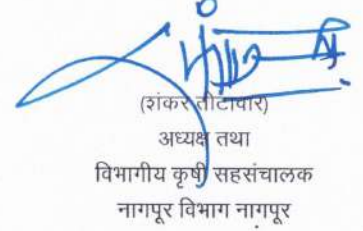 (शंकर तोटावार)
अध्यक्ष तथा
विभागीय कृषी सहसंचालक
नागपूर विभाग नागपूर